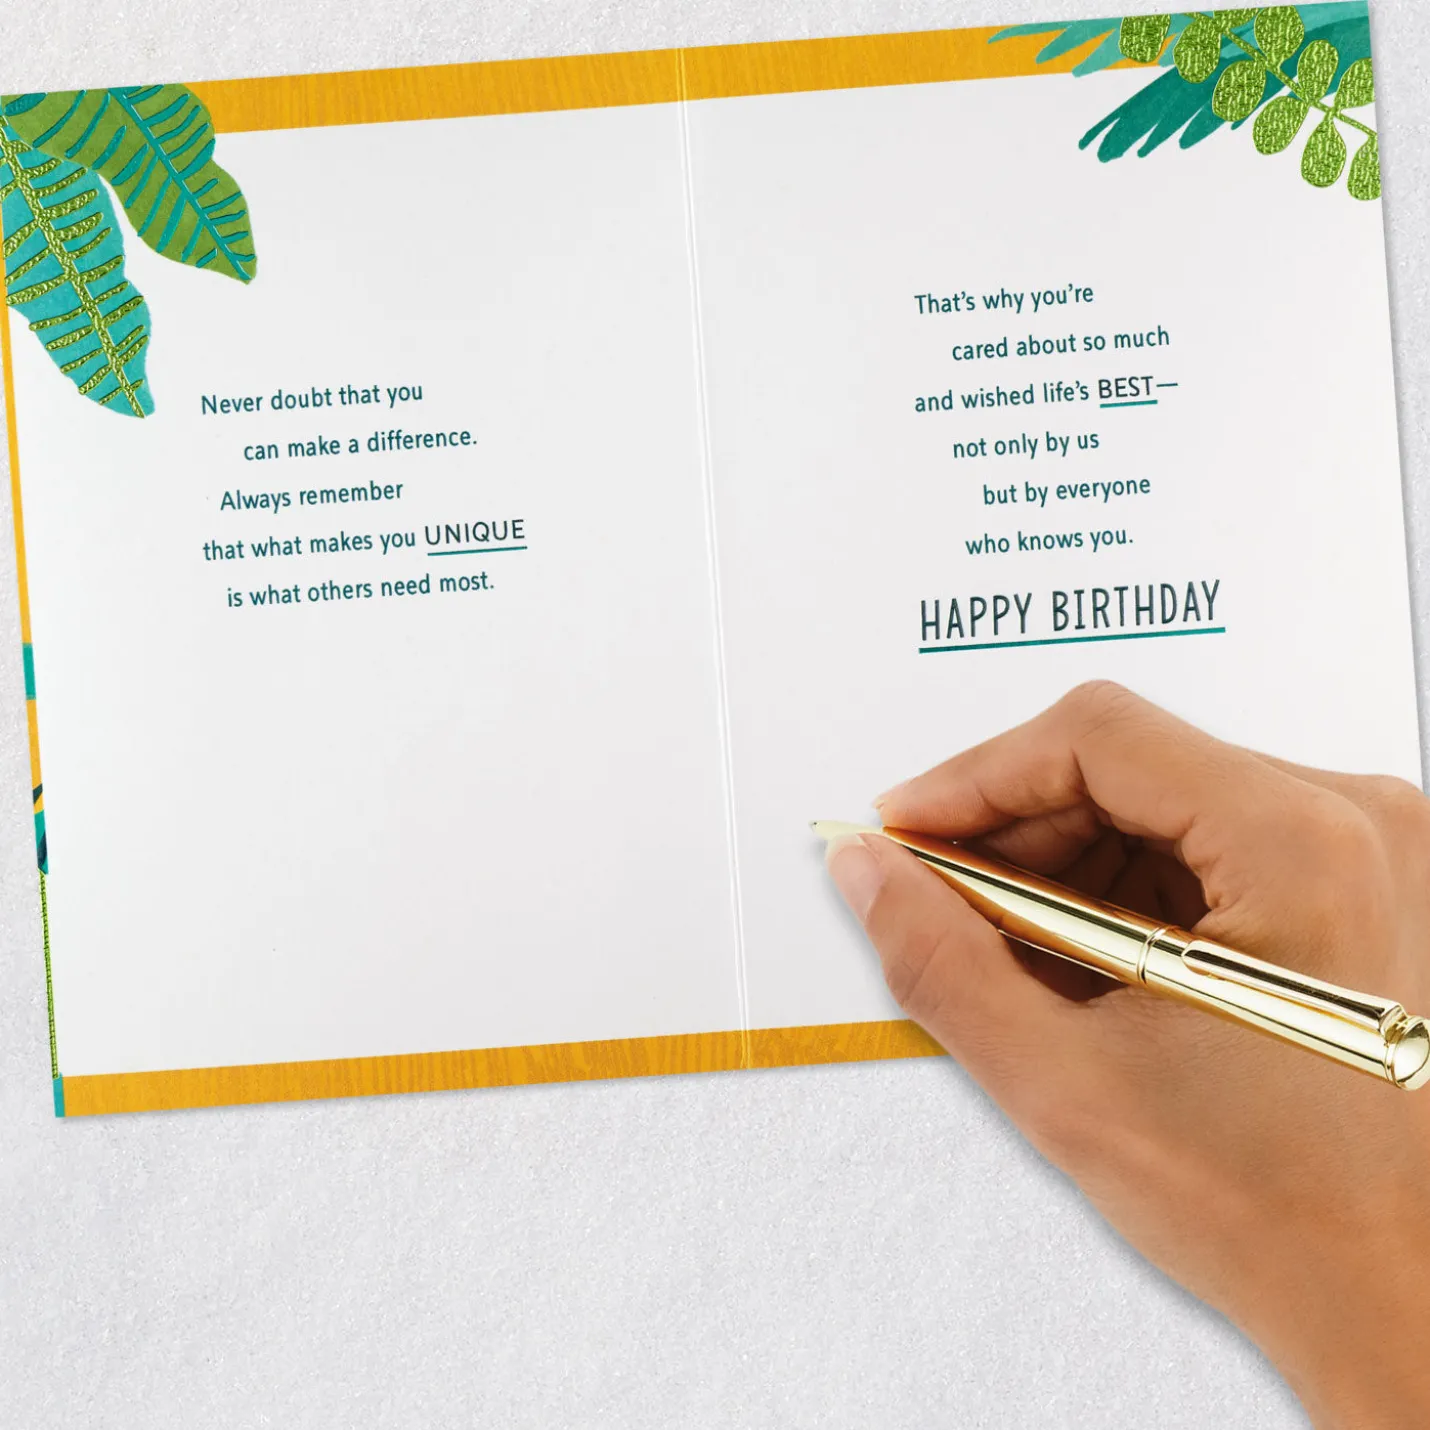 Never doubt that you
can make a difference.
Always remember
that what makes you UNIQUE
is what others need most.
That's why you're
cared about so much
and wished life's BEST—
not only by us
but by everyone
who knows you.
HAPPY BIRTHDAY